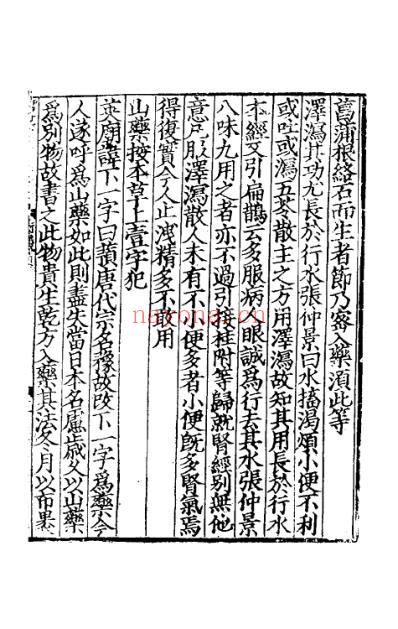 菖蒲根絡石而生者節乃密入藥須此等
澤瀉其功尤長於行水張仲景曰水搐渴煩小便不利
或吐或瀉五苓散主之方用澤瀉故知其用長於行水
本經又引扁鵲云多服病人眼誠爲行去其水張仲景
八味丸用之者亦不過引桂附等歸就腎經別無他
意凡服澤瀉散人未有不小便多者小便旣多腎氣焉
得復實今人止洩精多不敢用
山藥按本草上壹字犯
英廟諱下一字曰蕷唐代宗名豫故改下一字爲藥今
人遂呼爲山藥如此則盡失當日本名慮歲久以山藥
爲別物故書之此物貴生乾方入藥其法冬月以布裹
nayona.cn